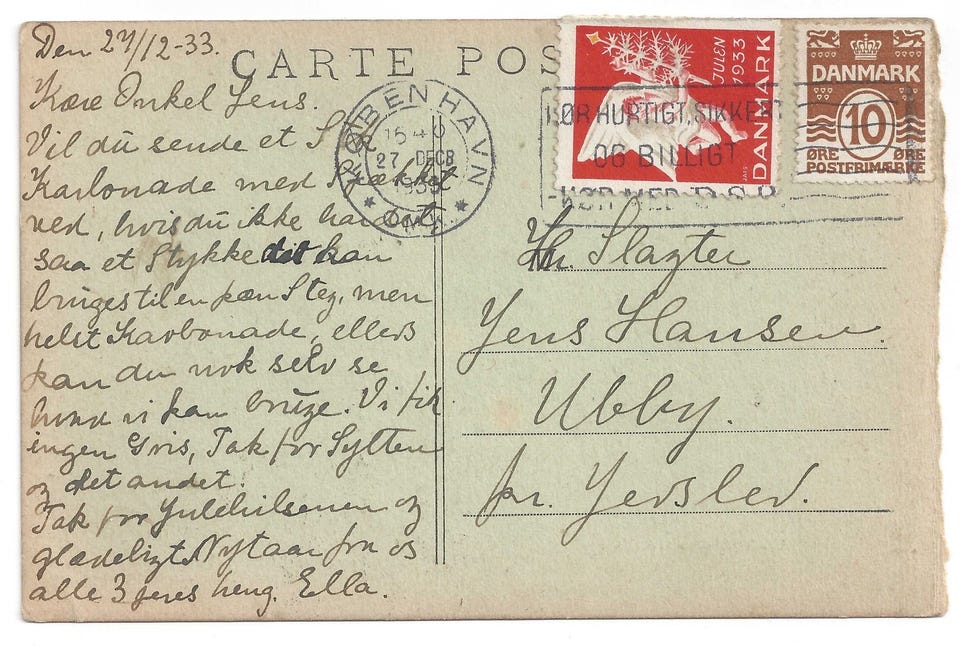 Den 27/12-33.
CARTE POS
Kære Onkel Jens.
Vil du sende et
Karbonade med Spækket
ved, hvis du ikke har det
saa et Stykke det kan
bruges til en pæn Steg, men
helst Karbonade, ellers
kan du nok selv se
hvad vi kan bruge. Vi fik
ingen Gris, Tak for Sylten
og det andet.
Tak for Julehilsenen og
glædeligt Nytaar fra os
alle 3 Jeres heng. Ella.
KØBENHAVN
27 DECB
1933
OMK.
KØR HURTIGT, SIKKERT
OG BILLIGT
KØR MED D.S.B.
JULEN
1933
DANMARK
DANMARK
10
ØRE ØRE
POSTFRIMÆRKE
Hr. Slagter
Jens Hansen.
Ubby.
pr. Jerslev.